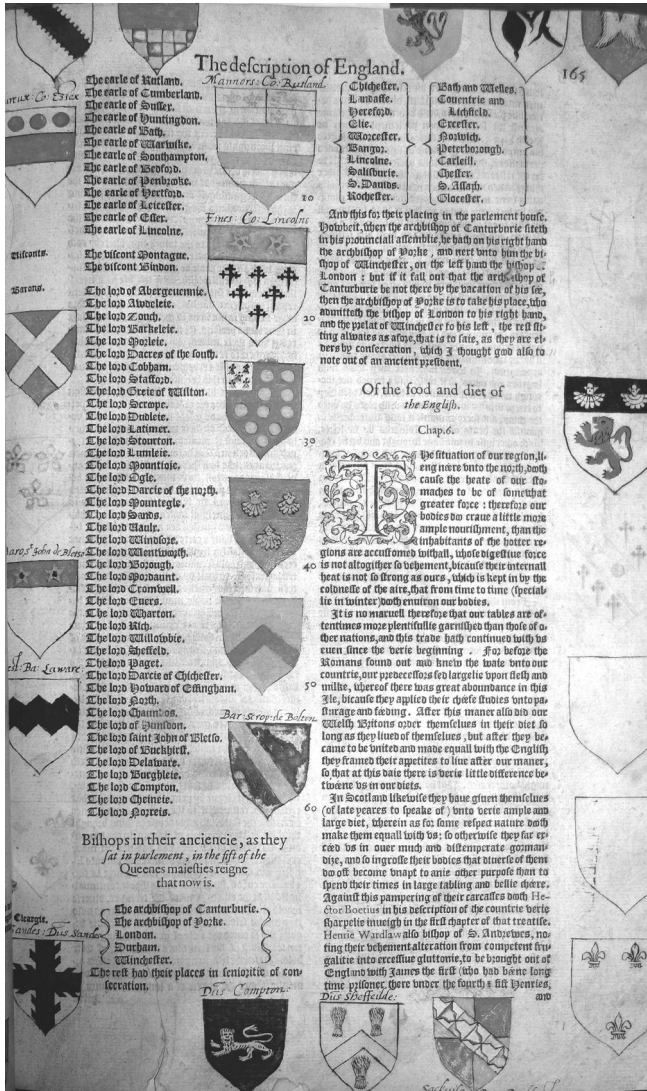 The description of England.
165
Mannors: Co: Rutland
The earle of Rutland.
The earle of Cumberland.
The earle of Sussex.
The earle of Huntingdon.
The earle of Bath.
The earle of Warwike.
The earle of Southampton.
The earle of Bedford.
The earle of Penbroke.
The earle of Hertford.
The earle of Leicester.
The earle of Essex.
The earle of Lincolne.
Co: Essex
Fines: Co: Lincolne
Visconts.
The viscont Montague.
The viscont Bindon.
Barons.
The lord of Abergeuennie.
The lord Awdeleie.
The lord Zouch.
The lord Barkeleie.
The lord Morleie.
The lord Dacres of the south.
The lord Cobham.
The lord Stafford.
The lord Greie of Wilton.
The lord Scroope.
The lord Dudleie.
The lord Latimer.
The lord Stourton.
The lord Lumleie.
The lord Mountioie.
The lord Ogle.
The lord Darcie of the north.
The lord Mountegle.
The lord Sands.
The lord Vaulx.
The lord Windsore.
The lord Wentworth.
The lord Borough.
The lord Mordaunt.
The lord Cromwell.
The lord Euers.
The lord Wharton.
The lord Rich.
The lord Willowbie.
The lord Sheffeld.
The lord Paget.
The lord Darcie of Chichester.
The lord Howard of Effingham.
The lord North.
The lord Chaundos.
The lord of Hunsdon.
The lord saint John of Bletso.
The lord of Buckhirst.
The lord Delaware.
The lord Burghleie.
The lord Compton.
The lord Cheineie.
The lord Norreis.
St John de Bletso
Ba: Laware:
Bar: Scrop: de Bolton
10
20
30
40
50
60
Bishops in their anciencie, as they
sat in parlement, in the fift of the
Queenes maiesties reigne
that now is.
Cleargie.
The archbishop of Canturburie.
The archbishop of Yorke.
London.
Durham.
Winchester.
The rest had their places in senioritie of con-
secration.
Sandes: Dñs Sandes
Dñs Compton:
Chichester.
Landaffe.
Hereford.
Elie.
Worcester.
Bangor.
Lincolne.
Salisburie.
S. Dauids.
Rochester.
Bath and Welles.
Couentrie and
Lichfield.
Excester.
Norwich.
Peterborough.
Carleill.
Chester.
S. Assaph.
Glocester.
And this for their placing in the parlement house.
Howbeit, when the archbishop of Canturburie siteth
in his prouinciall assemblie, he hath on his right hand
the archbishop of Yorke, and next vnto him the bi-
shop of Winchester, on the left hand the bishop
London: but if it fall out that the archbishop of
Canturburie be not there by the vacation of his see,
then the archbishop of Yorke is to take his place, who
admitteth the bishop of London to his right hand,
and the prelat of Winchester to his left, the rest sit-
ting alwaies as afore, that is to saie, as they are el-
ders by consecration, which I thought good also to
note out of an ancient president.
Of the food and diet of
the English.
Chap. 6.
THe situation of our region, li-
eng neere vnto the north, dooth
cause the heate of our sto-
maches to be of somewhat
greater force: therefore our
bodies doo craue a little more
ample nourishment, than the
inhabitants of the hotter re-
gions are accustomed withall, whose digestiue force
is not altogither so vehement, bicause their internall
heat is not so strong as ours, which is kept in by the
coldnesse of the aire, that from time to time (special-
lie in winter) dooth enuiron our bodies.
It is no maruell therefore that our tables are of-
tentimes more plentifullie garnished than those of o-
ther nations, and this trade hath continued with vs
euen since the verie beginning. For before the
Romans found out and knew the waie vnto our
countrie, our predecessors fed largelie vpon flesh and
milke, whereof there was great aboundance in this
Ile, bicause they applied their cheefe studies vnto pa-
sturage and feeding. After this maner also did our
Welsh Britons order themselues in their diet so
long as they liued of themselues, but after they be-
came to be vnited and made equall with the English
they framed their appetites to liue after our maner,
so that at this daie there is verie little difference be-
tweene vs in our diets.
In Scotland likewise they haue giuen themselues
(of late yeares to speake of) vnto verie ample and
large diet, wherein as for some respect nature dooth
make them equall with vs: so otherwise they far ex-
ceed vs in ouer much and distemperate gorman-
dize, and so ingrosse their bodies that diuerse of them
doo oft become vnapt to anie other purpose than to
spend their times in large tabling and bellie cheere.
Against this pampering of their carcasses dooth He-
ctor Boetius in his description of the countrie verie
sharpelie inueigh in the first chapter of that treatise.
Henrie Wardlaw also bishop of S. Andrewes, no-
ting their vehement alteration from competent fru-
galitie into excessiue gluttonie, to be brought out of
England with Iames the first (who had beene long
time prisoner there vnder the fourth & fift Henries,
and
Dñs Sheffeilde: